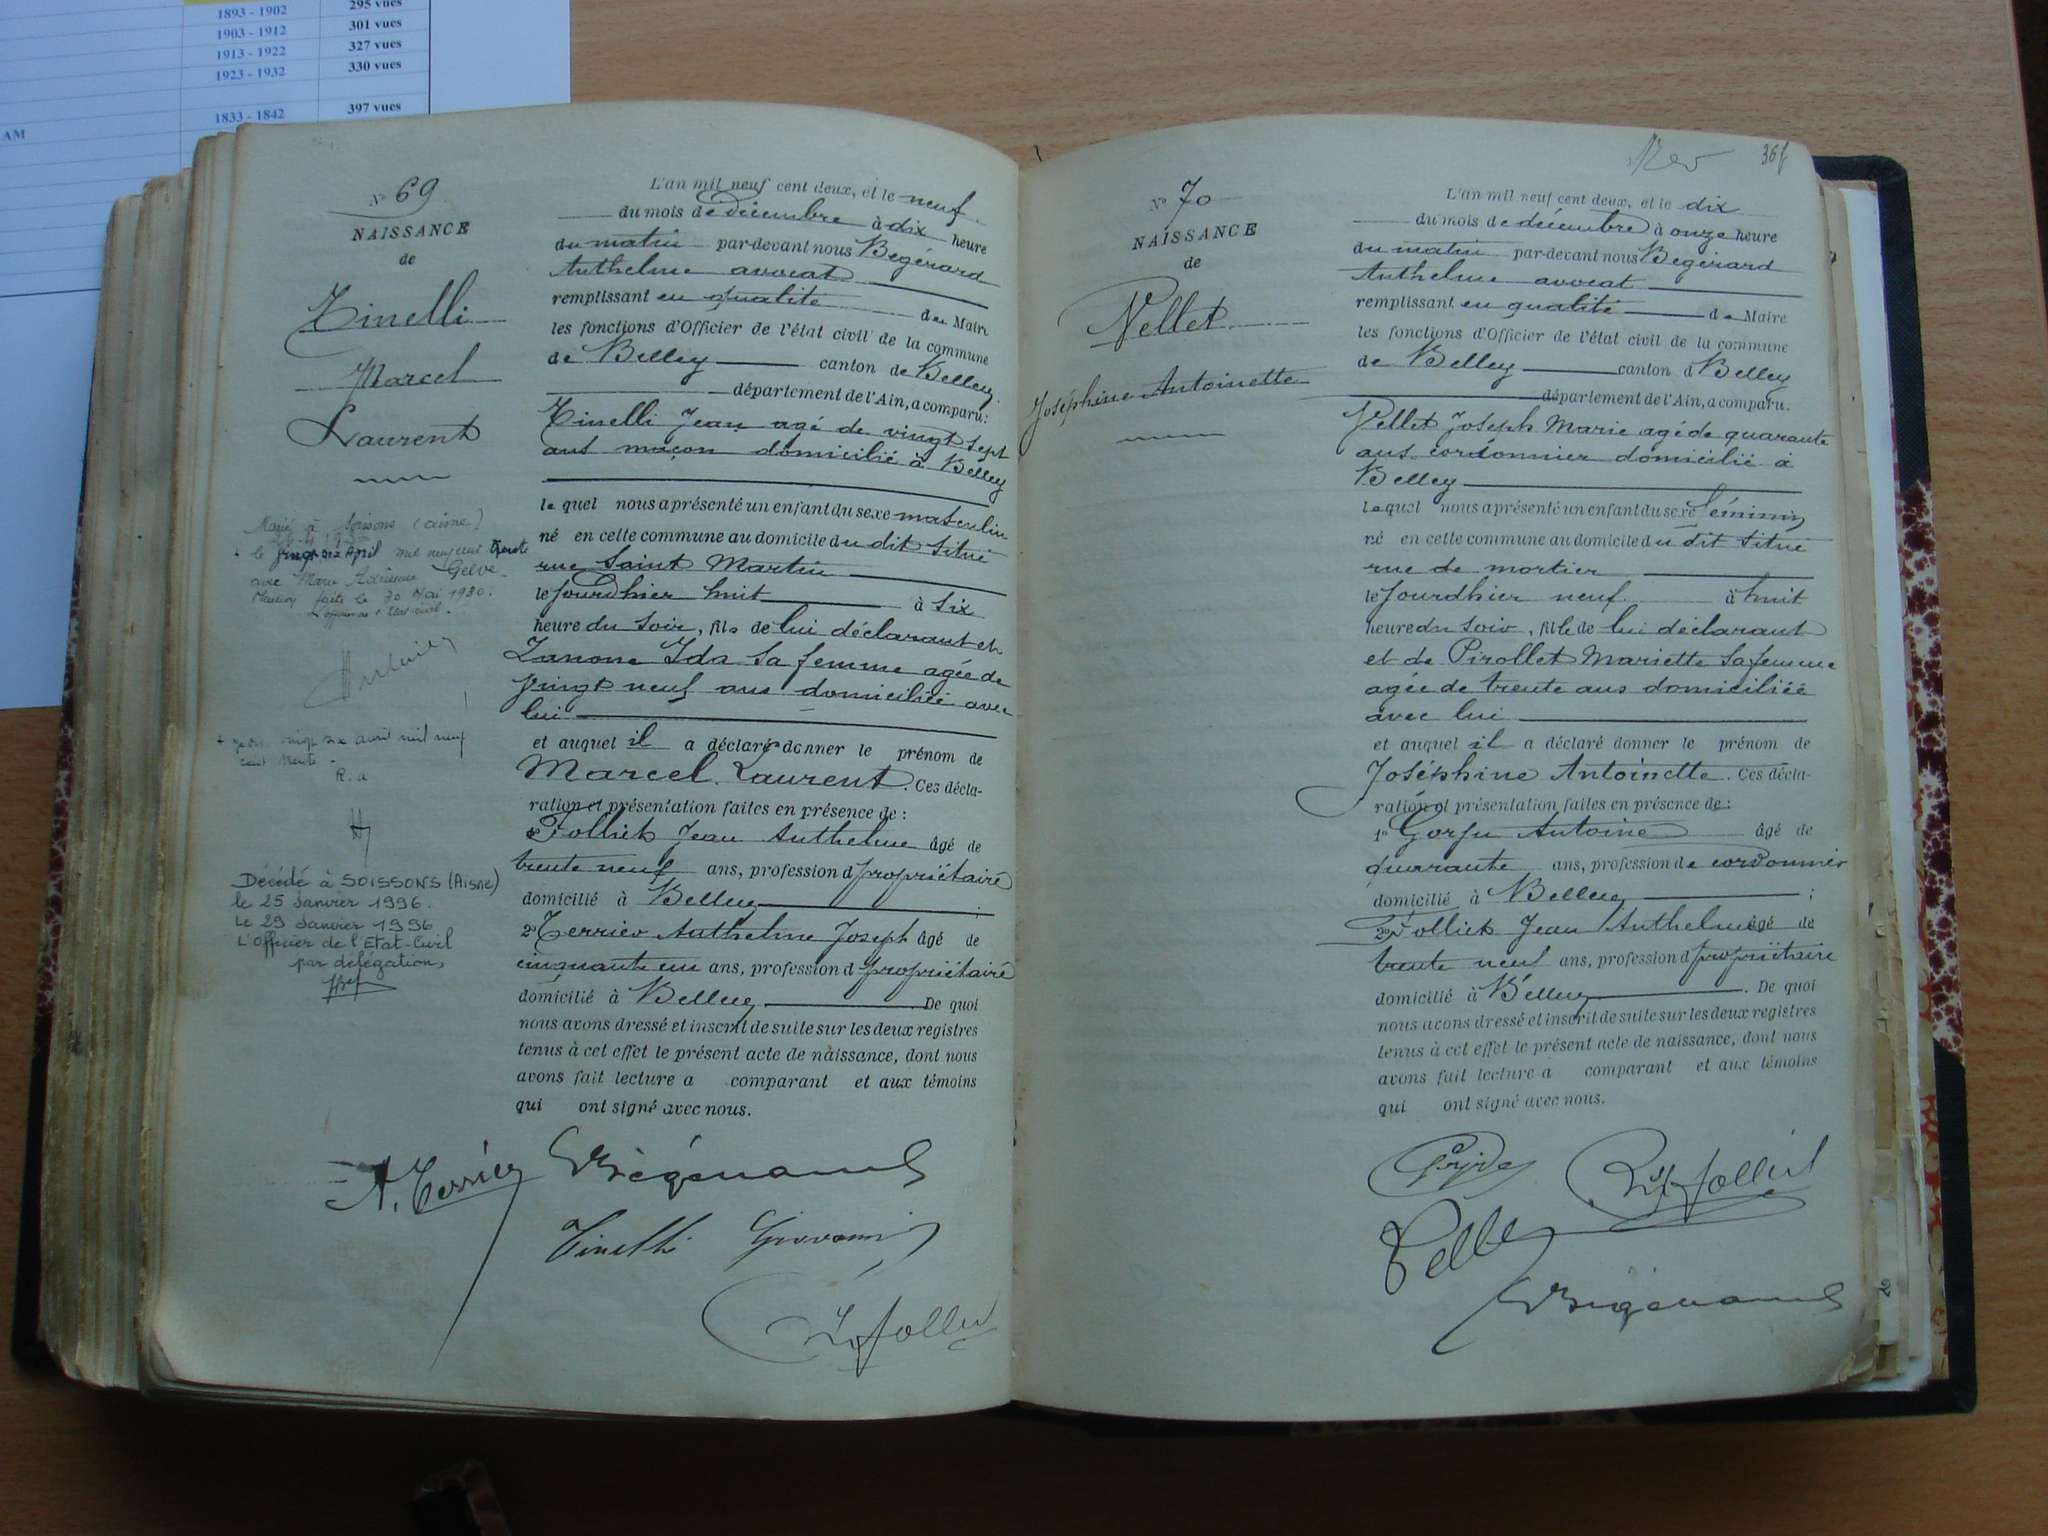 295 vues
1893 - 1902
301 vues
1903 - 1912
327 vues
1913 - 1922
330 vues
1923 - 1932
397 vues
1833 - 1842
AM
N° 69
NAISSANCE
de
Tinelli
Marcel
Laurent
Marié à Soissons (aisne)
le vingt six April mil neuf cent trente
avec Marie Adrienne
Mention faite le 30 Mai 1930.
L'officier de l'Etat-civil.
vingt six avril mil neuf
cent trente.
R. a
Décédé à SOISSONS (Aisne)
le 25 Janvier 1996.
Le 29 Janvier 1996
L'Officier de l'Etat-Civil
par délégation,
L'an mil neuf cent deux, et le neuf
du mois de décembre à dix heure
du matin par-devant nous Bégérard
Anthelme avocat
remplissant en qualité de Maire
les fonctions d'Officier de l'état civil de la commune
de Belley canton de Belley
département de l'Ain, a comparu:
Tinelli Jean agé de vingt sept
ans maçon domicilié à Belley
le quel nous a présenté un enfant du sexe masculin
né en cette commune au domicile du dit situé
rue Saint Martin
le jourdhier huit à six
heure du soir, fils de lui déclarant et
Zanone Ida sa femme agée de
vingt neuf ans domiciliée avec
lui
et auquel il a déclaré donner le prénom de
Marcel Laurent. Ces décla-
ration et présentation faites en présence de:
Folliet Jean Anthelme âgé de
trente neuf ans, profession d propriétaire
domicilié à Belley ;
2° Terrier Anthelme Joseph âgé de
cinquante un ans, profession d propriétaire
domicilié à Belley. De quoi
nous avons dressé et inscrit de suite sur les deux registres
tenus à cet effet le présent acte de naissance, dont nous
avons fait lecture a comparant et aux témoins
qui ont signé avec nous.
A. Terrier Bégérard
Tinelli Giovanni
Folliet
36
N° 70
NAISSANCE
de
Vellet
Joséphine Antoinette
L'an mil neuf cent deux, et le dix
du mois de décembre à onze heure
du matin par-devant nous Bégérard
Anthelme avocat
remplissant en qualité de Maire
les fonctions d'Officier de l'état civil de la commune
de Belley canton d Belley
département de l'Ain, a comparu.
Vellet Joseph Marie agé de quarante
ans cordonnier domicilié à
Belley
Lequel nous a présenté un enfant du sexe féminin
né en cette commune au domicile du dit situé
rue de mortier
le jourdhier neuf à huit
heure du soir, fille de lui déclarant
et de Pirollet Mariette sa femme
agée de trente ans domiciliée
avec lui
et auquel il a déclaré donner le prénom de
Joséphine Antoinette. Ces décla-
ration et présentation faites en présence de:
1° Gorju Antoine âgé de
quarante ans, profession de cordonnier
domicilié à Belley ;
2° Folliet Jean Anthelme âgé de
trente neuf ans, profession d propriétaire
domicilié à Belley. De quoi
nous avons dressé et inscrit de suite sur les deux registres
tenus à cet effet le présent acte de naissance, dont nous
avons fait lecture a comparant et aux témoins
qui ont signé avec nous.
Folliet
Vellet
Bégérard